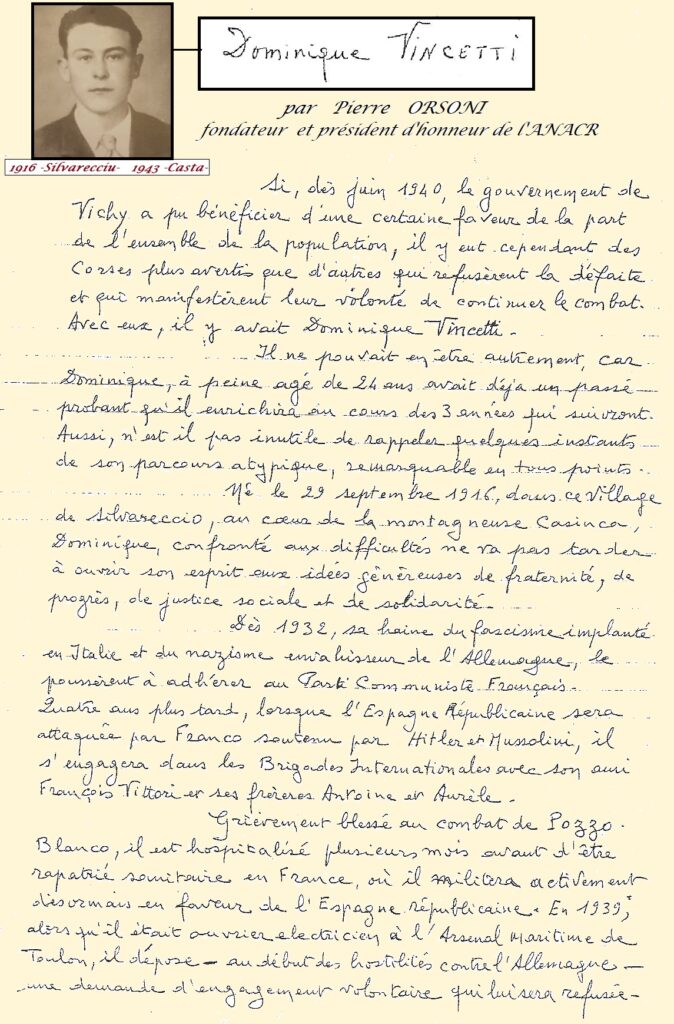 Dominique VINCETTI
par Pierre ORSONI
fondateur et président d'honneur de l'ANACR
1916 -Silvarecciu- 1943 -Casta-
Si, dès juin 1940, le gouvernement de
Vichy a pu bénéficier d'une certaine faveur de la part
de l'ensemble de la population, il y eut cependant des
Corses plus avertis que d'autres qui refusèrent la défaite
et qui manifestèrent leur volonté de continuer le combat.
Avec eux, il y avait Dominique Vincetti.
Il ne pouvait en être autrement, car
Dominique, à peine agé de 24 ans avait déjà un passé
probant qu'il enrichira au cours des 3 années qui suivront.
Aussi, n'est il pas inutile de rappeler quelques instants
de son parcours atypique, remarquable en tous points.
Né le 29 septembre 1916, dans ce village
de Silvareccio, au cœur de la montagneuse Casinca,
Dominique, confronté aux difficultés ne va pas tarder
à ouvrir son esprit aux idées généreuses de fraternité, de
progrès, de justice sociale et de solidarité.
Dès 1932, sa haine du fascisme implanté
en Italie et du nazisme envahisseur de l'Allemagne, le
poussèrent à adhérer au Parti Communiste Français.
Quatre ans plus tard, lorsque l'Espagne Républicaine sera
attaquée par Franco soutenu par Hitler et Mussolini, il
s'engagera dans les Brigades Internationales avec son ami
François Vittori et ses frèreres Antoine et Aurèle.
Grièvement blessé au combat de Pozzo.
Blanco, il est hospitalisé plusieurs mois avant d'être
rapatrié sanitaire en France, où il militera activement
désormais en faveur de l'Espagne républicaine. En 1939,
alors qu'il était ouvrier electricien à l'Arsenal Maritime de
Toulon, il dépose — au début des hostilités contre l'Allemagne —
une demande d'engagement volontaire qui lui sera refusée -